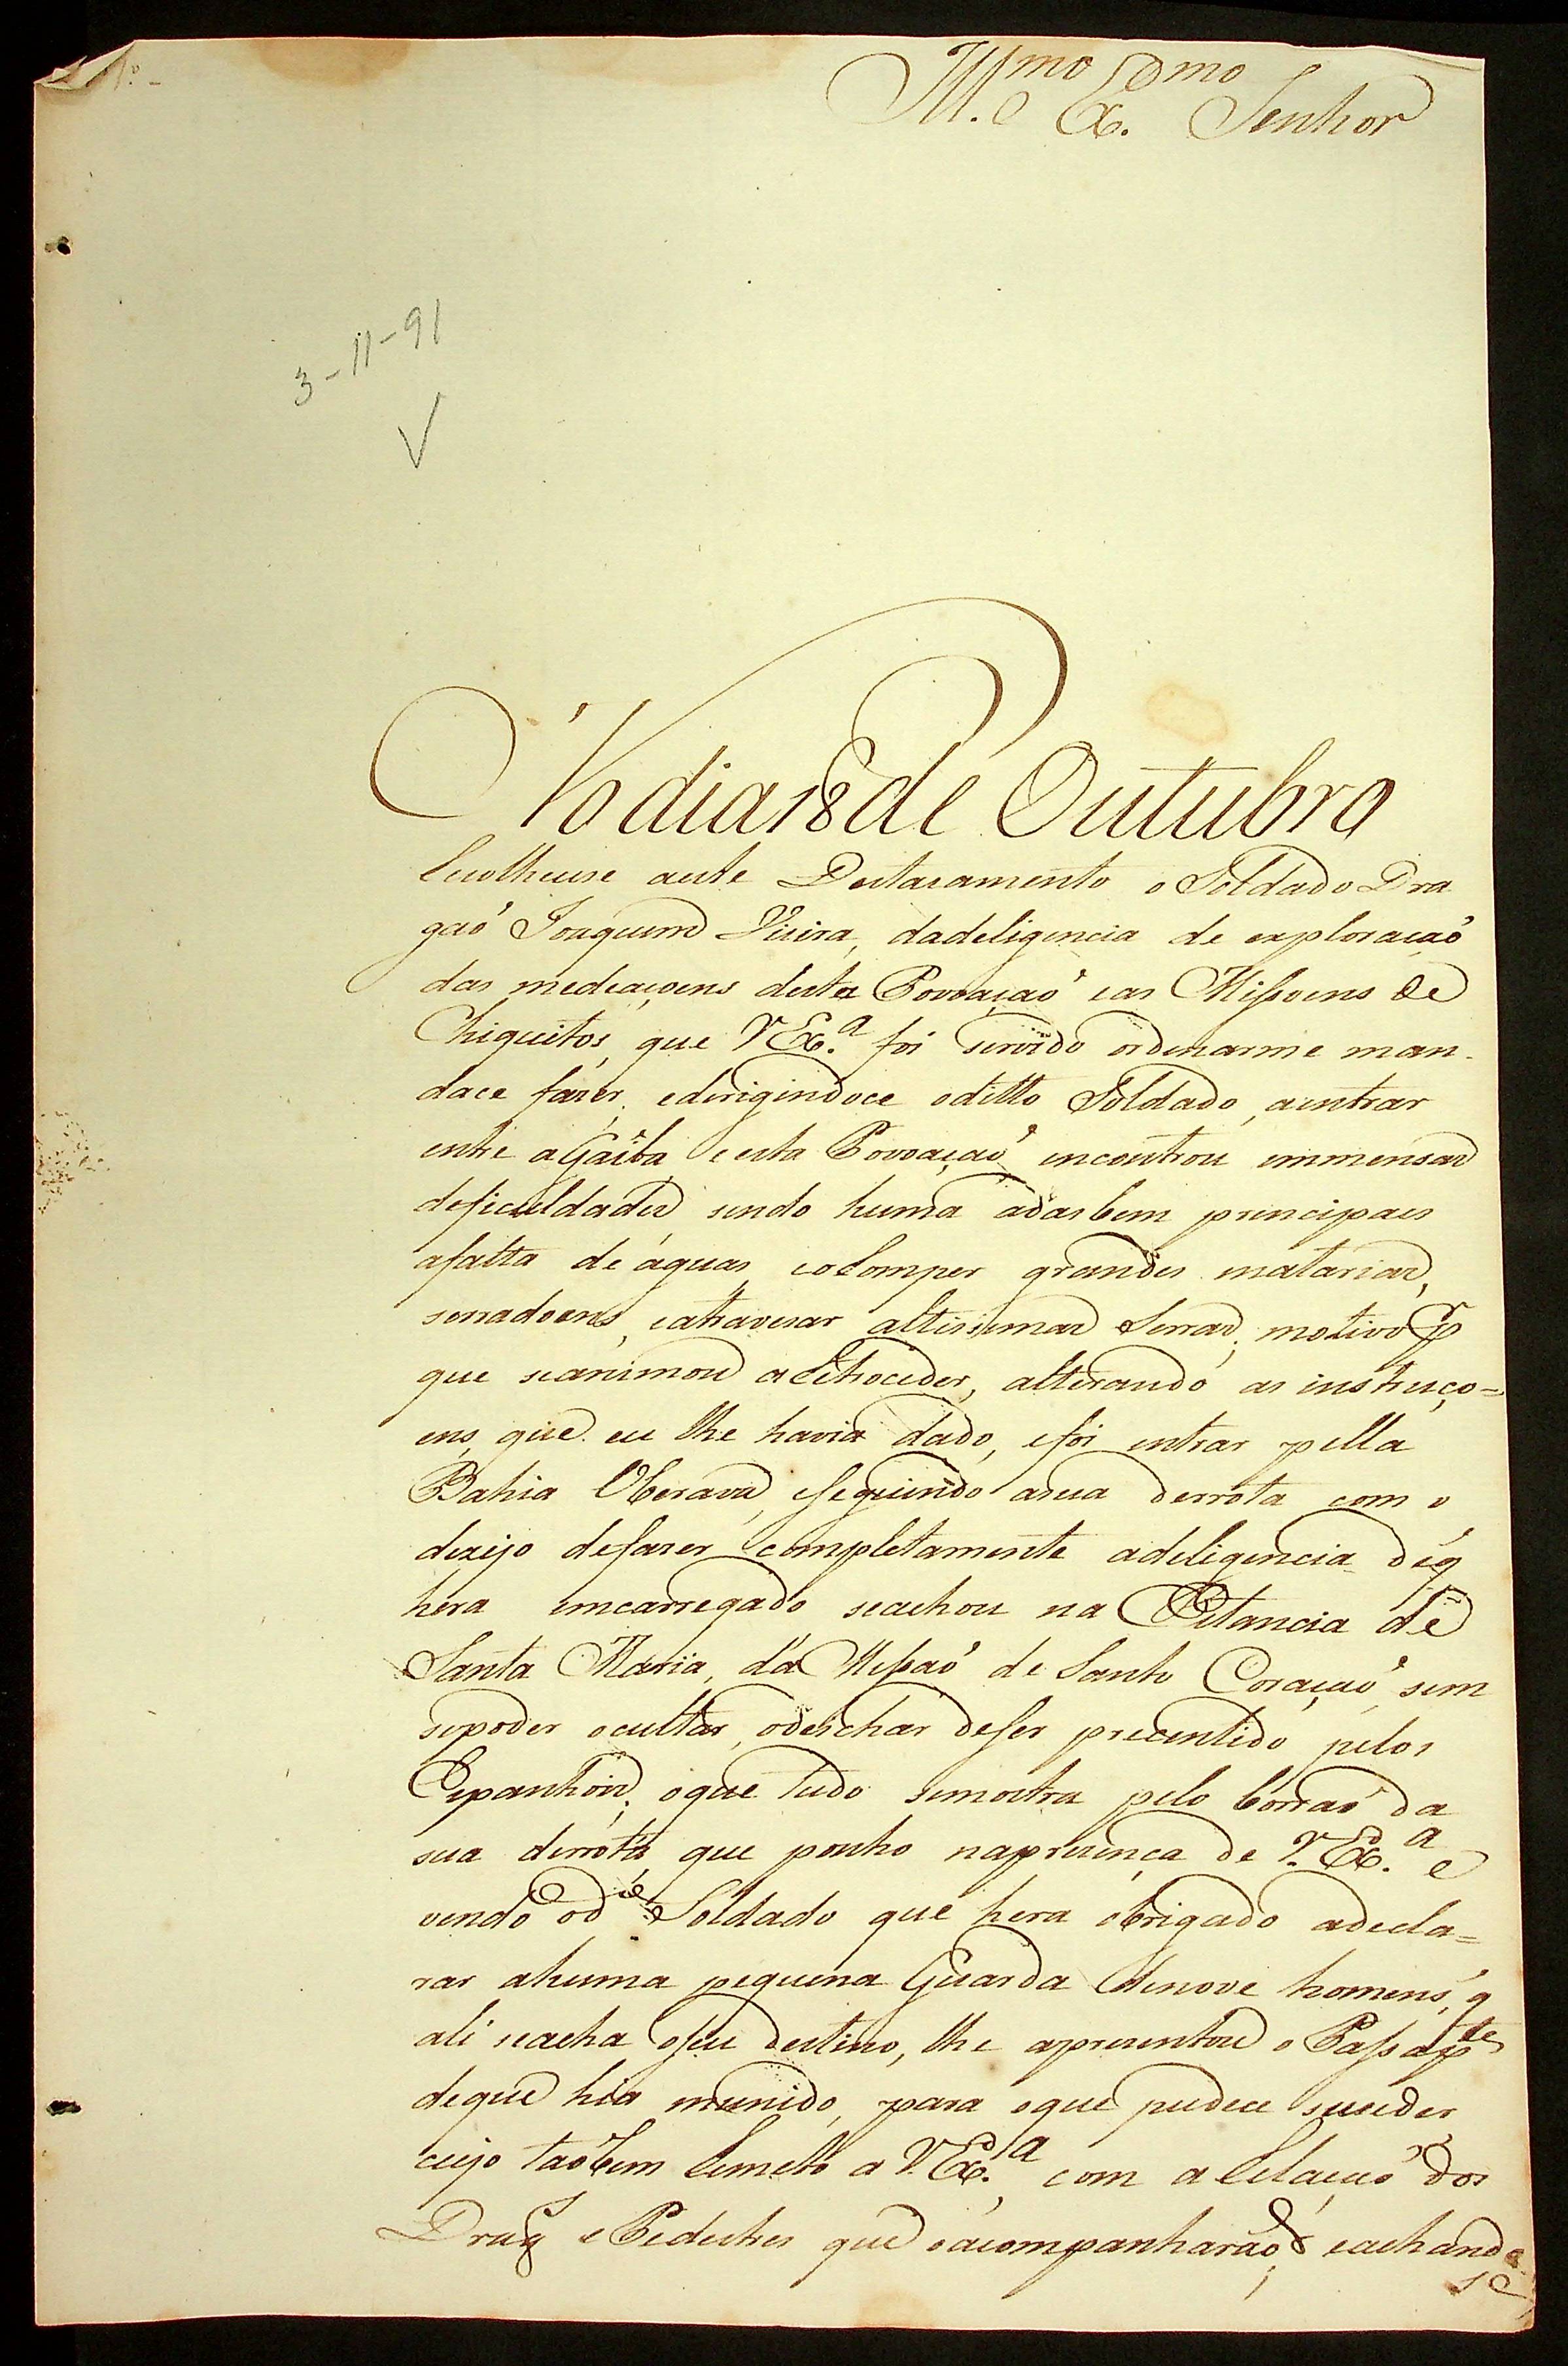 Ill.mo e Ex.mo Senhor
3-11-91
No dia 18 de Outubro
Recolheuse aeste Destacamento o Soldado Dra
gaó Joaquim Vieira, dadeligencia de exploraçaó
das mediaçoens desta Povoaçaó eas Missoens de
Chiquitos, que V Ex.ª foi servido ordenarme man-
dace fazer, edirigindoce oditto Soldado, aentrar
entre aGaiba eesta Povoaçaó encontrou emmensas
deficuldades sendo huma adasbem principaes
afalta de águas, eoRomper grandes matarias,
serradoens, eatravesar altissimas Serras; motivo p
que seanimou aRetroceder, alterando as instruço-
ens, que eu lhe havia dado, efoi entrar pella
Bahia Uberava, eSeguindo asua derrota com o
dezejo defazer completamente adeligencia deq
hera emcarregado seachou na Estancia de
Santa Maria, da Missaó de Santo Coraçaó, sem
sepoder ocultar, odeichar deser precentido pelos
Espanhois; oque tudo semostra pelo borraó da
sua derrota, que ponho naprezença de V. Ex.ª e
vendo od.e Soldado que hera obrigado adecla-
rar ahuma pequena Guarda denove homens, q
ali seacha oseu destino, lhe aprezentou o Passap.te
deque hia munido, para oque pudece suseder
cujo taóbem Remeto a V. Ex.ª, com a Relaçaó dos
Drag e Pedestres que oacompanharaó; eachando
se